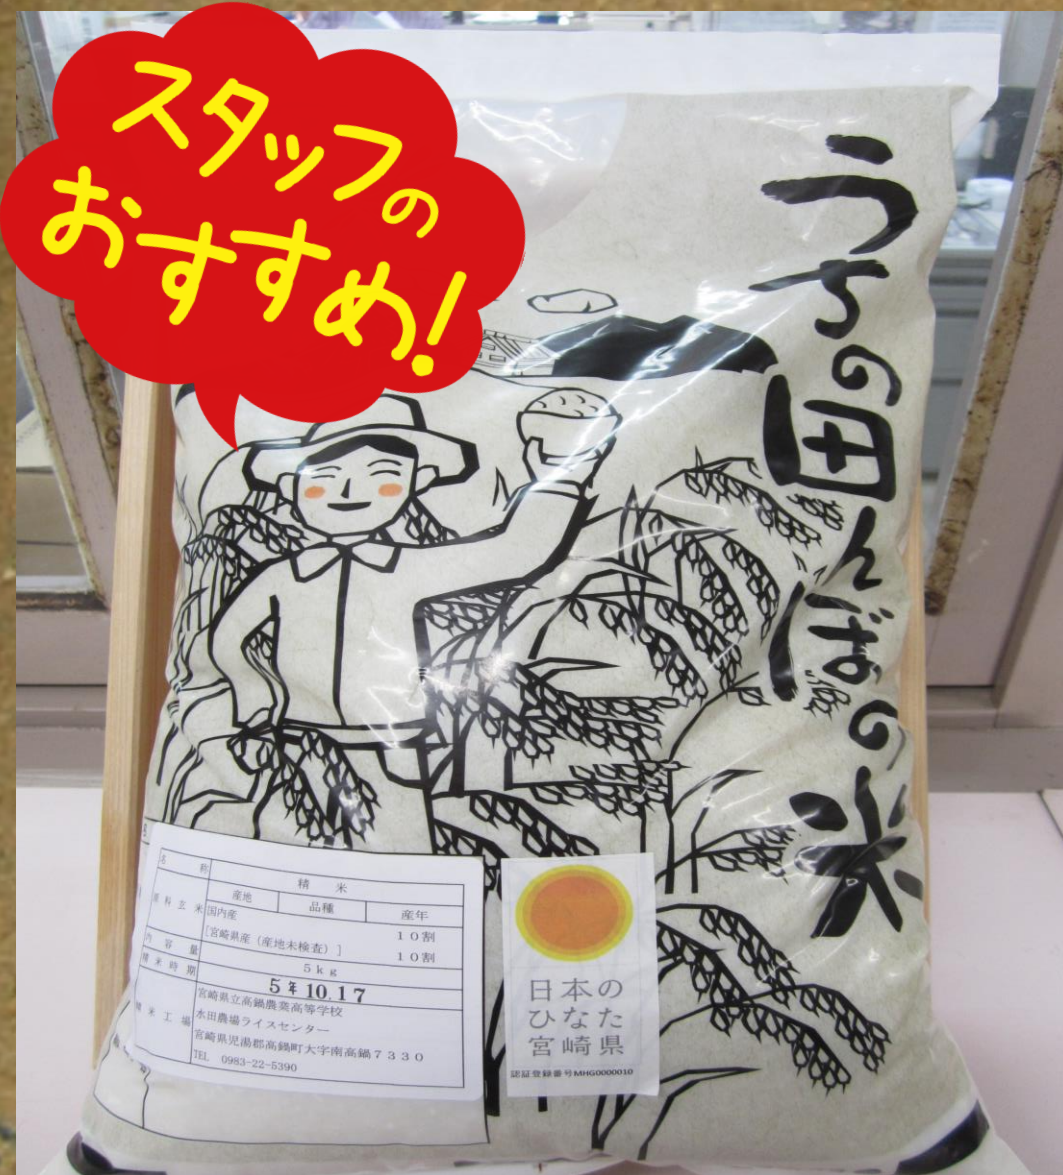 スタッフの
おすすめ!
うちの田んぼの米
名称 精米
原料玄米 産地 品種 産年
国内産 10割
[宮崎県産(産地未検査)] 10割
内容量 5kg
精米時期 5年10.17
精米工場 宮崎県立高鍋農業高等学校
水田農場ライスセンター
宮崎県児湯郡高鍋町大字南高鍋7330
TEL 0983-22-5390
日本の
ひなた
宮崎県
認証登録番号MHG0000010